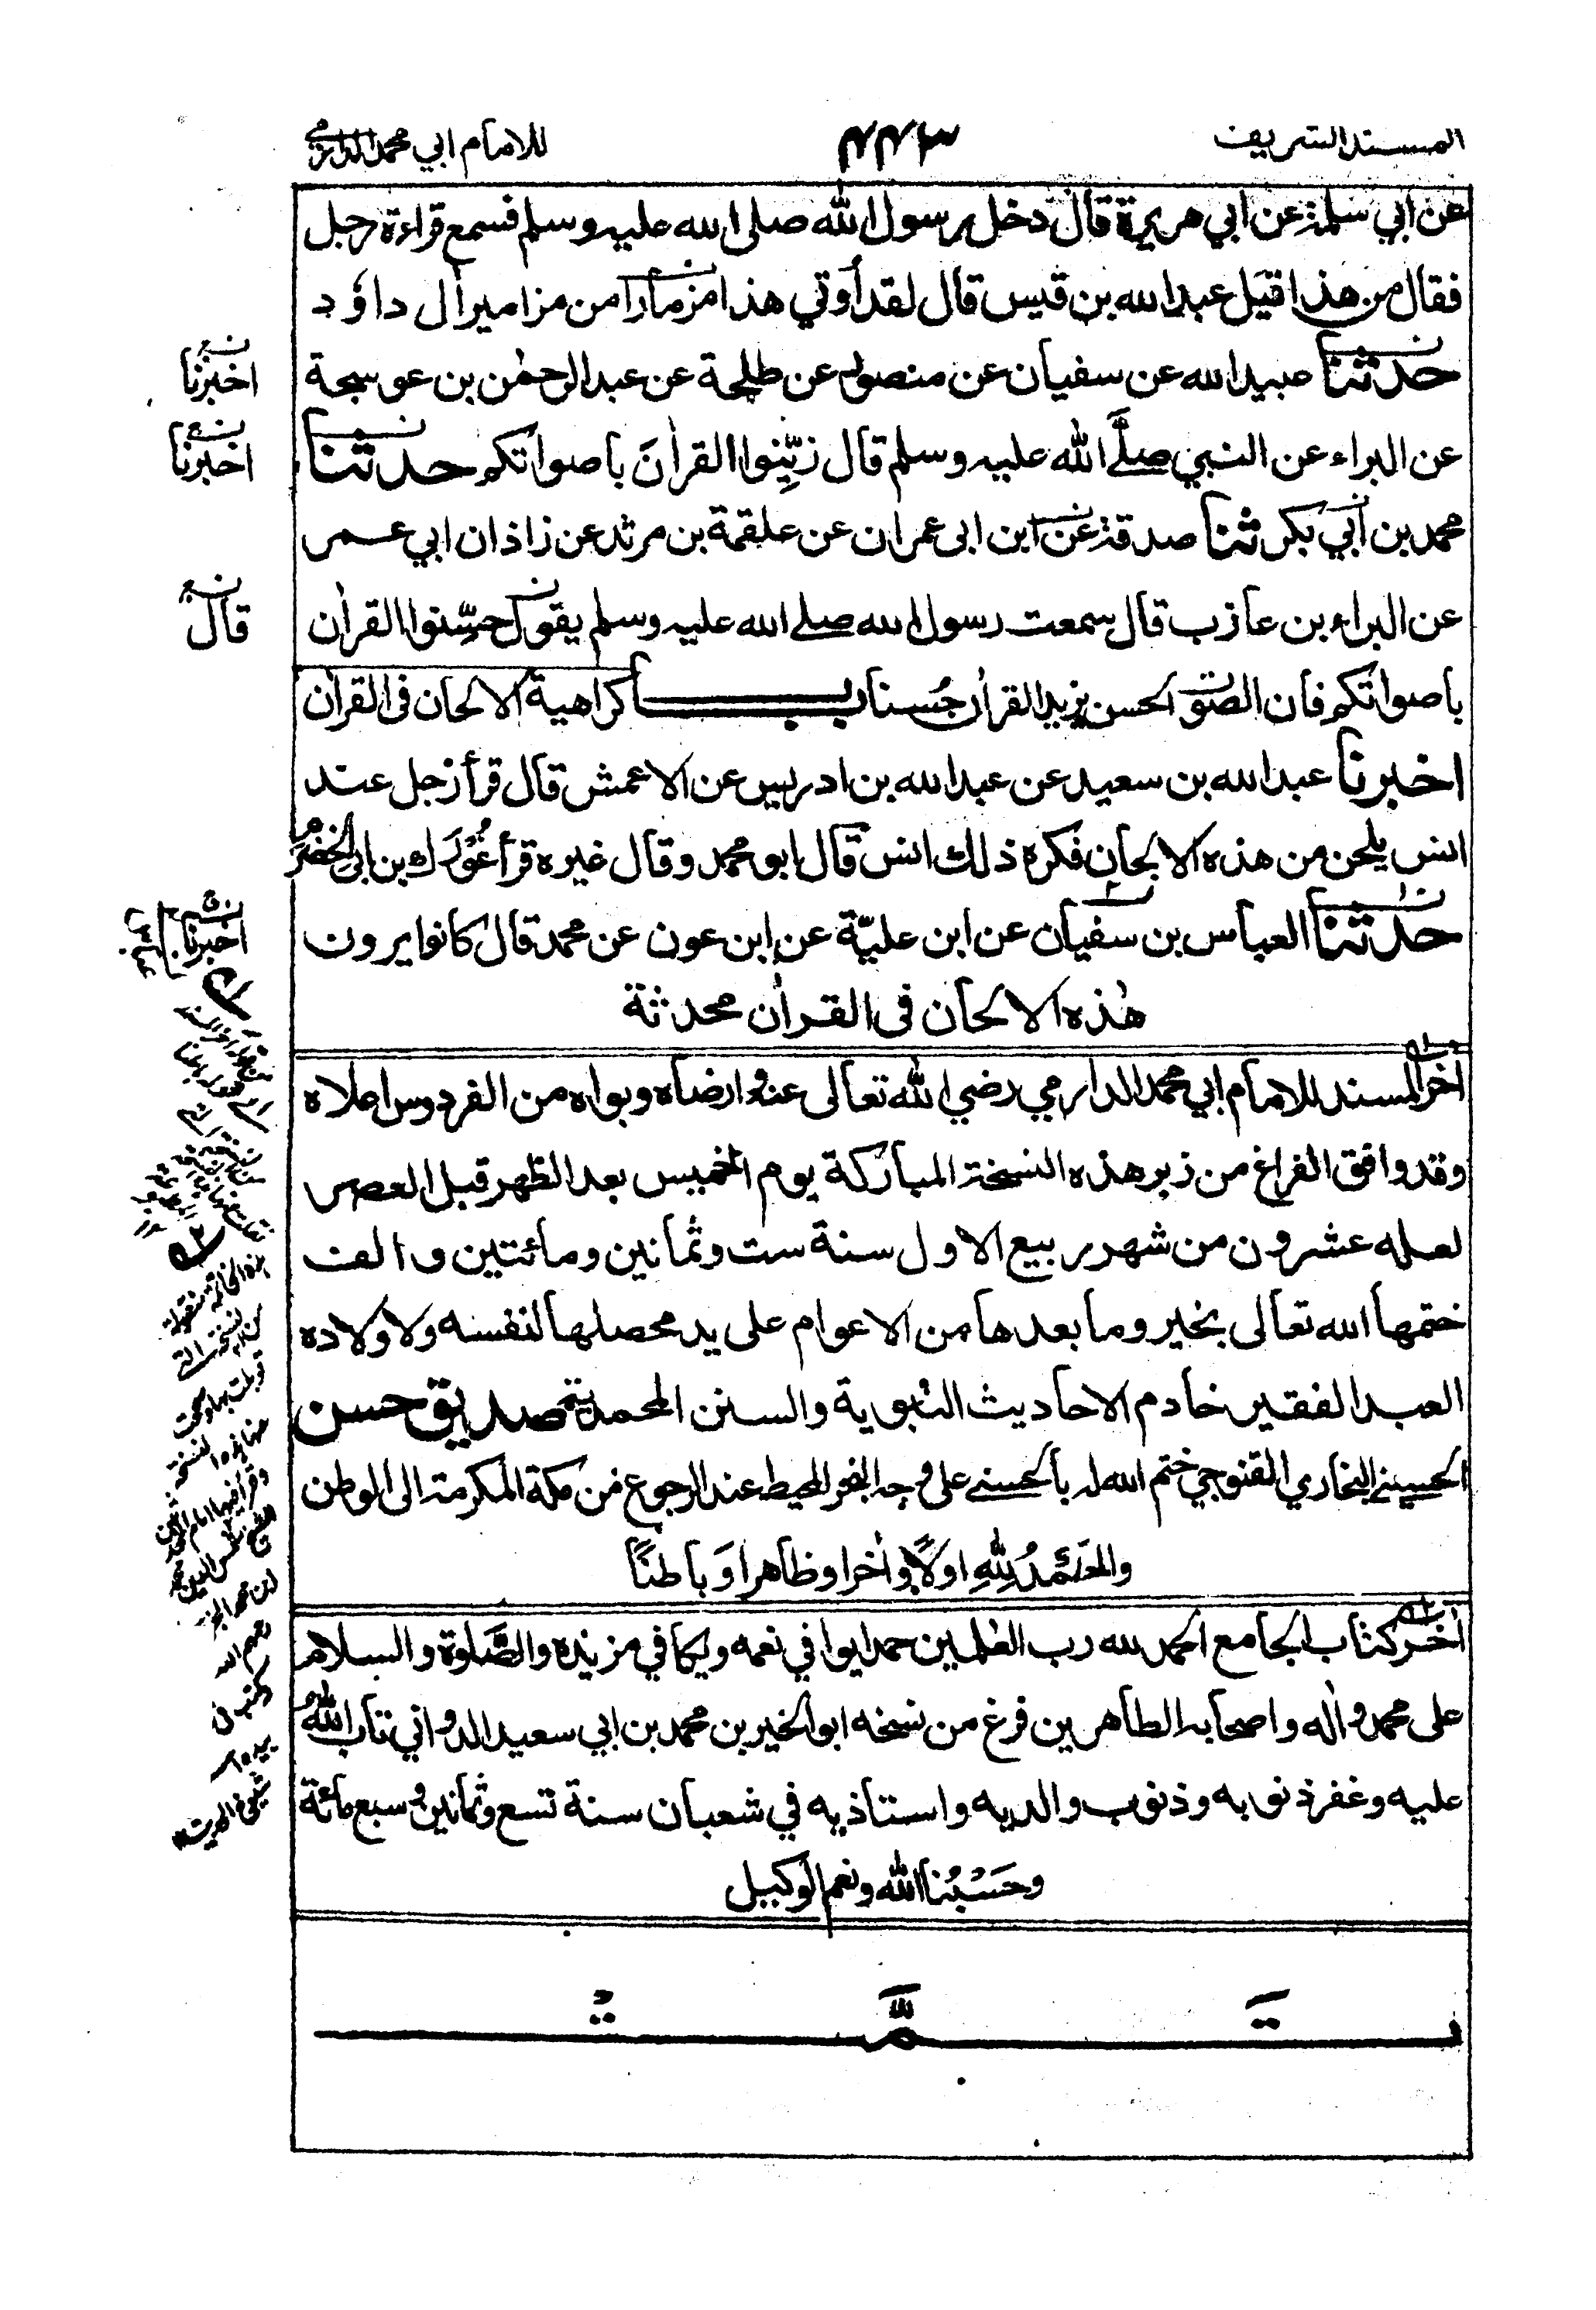 المسند الشريف ٤٤٣ للامام ابي محمد الدارمي
عن ابي سلمة عن ابي هريرة قال دخل رسول الله صلى الله عليه وسلم فسمع قراءة رجل
فقال من هذا قيل عبد الله بن قيس قال لقد أوتي هذا مزمارا من مزامير أل داؤد
حدثنا عبيد الله عن سفيان عن منصور عن طلحة عن عبد الرحمٰن بن عوسجة
اخبرنا
عن البراء عن النبي صلَّى الله عليه وسلم قال زيِّنوا القراٰنَ باصواتكم حدثنا
اخبرنا
محمد بن أبي بكر ثنا صدقة عن ابن ابي عمران عن علقمة بن مرثد عن زاذان ابي عمر
عن البراء بن عازب قال سمعت رسول الله صلے الله عليه وسلم يقول حسِّنوا القراٰن
قال
باصواتكم فان الصوت الحسن يزيد القراٰن حُسنا باب كراهية الالحان في القراٰن
اخبرنا عبد الله بن سعيد عن عبد الله بن ادريس عن الاعمش قال قرأ رجل عند
انس يلحن من هذه الالحان فكره ذلك انس قال ابو محمد وقال غيره قرأ غُوْرَك بن ابي الخضرم
حدثنا العباس بن سفيان عن ابن عليّة عن ابن عون عن محمد قال كانوا يرون
اخبرنا
هٰذه الالحان في القراٰن محدثة
اٰخر المسند للامام ابي محمد الدارمي رضي الله تعالى عنه وارضاه وبواه من الفردوس اعلاه
وقد وافق الفراغ من زبر هذه النسخة المباركة يوم الخميس بعد الظهر قبل العصر
لعله عشرون من شهر ربيع الاول سنة ست وثمانين ومائتين والف
ختمها الله تعالى بخير وما بعدها من الاعوام على يد محصلها لنفسه ولاولاده
العبد الفقير خادم الاحاديث النبوية والسنن المحمدية صديق حسن
الحسيني البخاري القنوجي ختم الله له بالحسنے على وجه البحر المحيط عند الرجوع من مكة المكرمة الى الوطن
والحَمْدُ لِلّٰهِ اولاً واٰخرا وظاهرا وَباطنًا
اٰخر كتاب الجامع الحمد لله رب العٰلمين حمدا يوافي نعمه ويكافي مزيده والصَّلوة والسلام
على محمد واٰله واصحابه الطاهرين فرغ من نسخه ابو الخير بن محمد بن ابي سعيد الدواني تاب اللّٰهُ
عليه وغفر ذنوبه وذنوب والديه واستاذيه في شعبان سنة تسع وثمانين وسبع مائة
وحَسْبُنا اللّٰه ونعم الوكيل
تَـمَّـتْ
هذه الخاتمة منقولة
من النسخة التي
قوبلت بها وصححت
منها هذه النسخة
وقرأ فيها امام المحدثين
الشيخ شمس الدين محمد
ابن محمد الجزري
رحمه الله